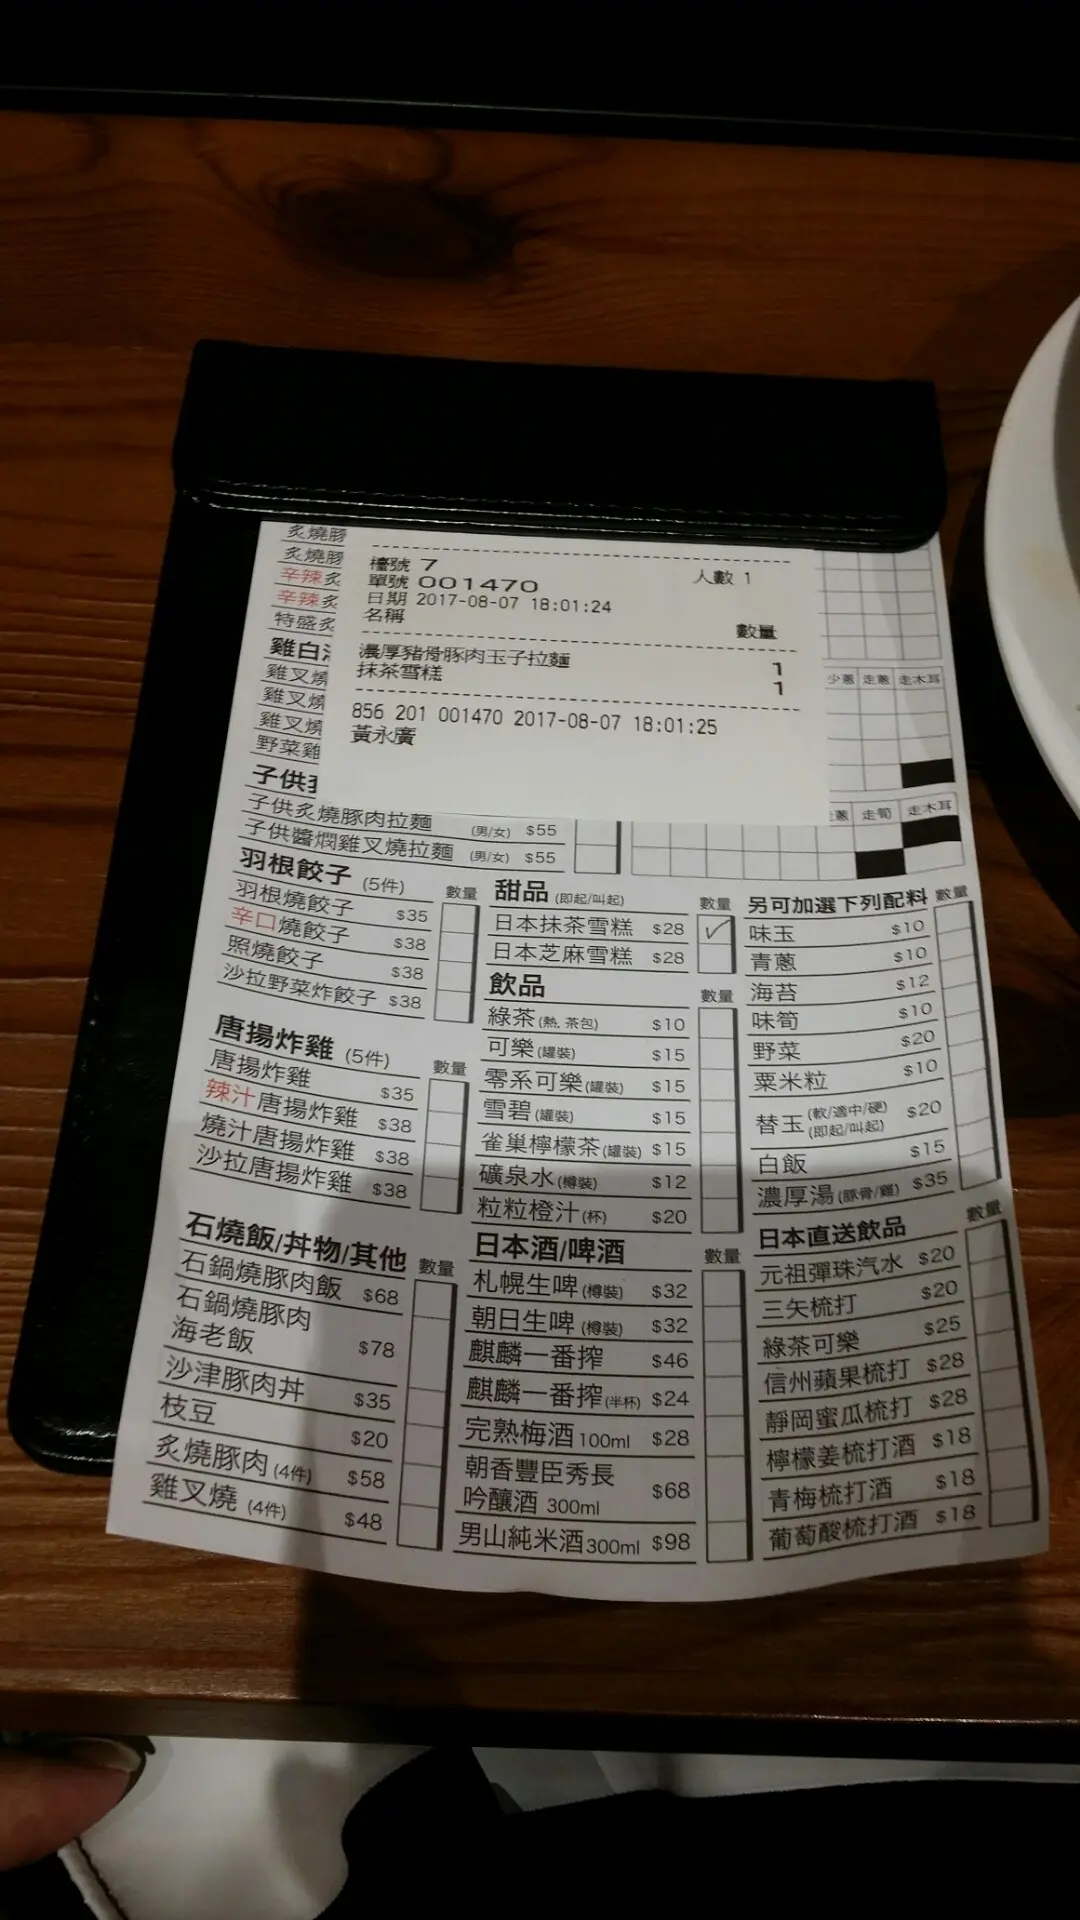 炙燒豚
炙燒豚
辛辣炙
辛辣炙
特盛炙
雞白
雞叉燒
雞叉燒
雞叉燒
野菜雞
子供
檯號 7 人數 1
單號 001470
日期 2017-08-07 18:01:24
名稱 數量
濃厚豬骨豚肉玉子拉麵 1
抹茶雪糕 1
856 201 001470 2017-08-07 18:01:25
黃永廣
少蔥 走蔥 走木耳
蔥 走筍 走木耳
子供炙燒豚肉拉麵 (男/女) $55
子供醬燜雞叉燒拉麵 (男/女) $55
羽根餃子 (5件) 數量
羽根燒餃子 $35
辛口燒餃子 $38
照燒餃子 $38
沙拉野菜炸餃子 $38
唐揚炸雞 (5件) 數量
唐揚炸雞 $35
辣汁唐揚炸雞 $38
燒汁唐揚炸雞 $38
沙拉唐揚炸雞 $38
石燒飯/丼物/其他 數量
石鍋燒豚肉飯 $68
石鍋燒豚肉
海老飯 $78
沙津豚肉丼 $35
枝豆 $20
炙燒豚肉 (4件) $58
雞叉燒 (4件) $48
甜品 (即起/叫起) 數量
日本抹茶雪糕 $28 ✓
日本芝麻雪糕 $28
飲品 數量
綠茶 (熱, 茶包) $10
可樂 (罐裝) $15
零系可樂 (罐裝) $15
雪碧 (罐裝) $15
雀巢檸檬茶 (罐裝) $15
礦泉水 (樽裝) $12
粒粒橙汁 (杯) $20
日本酒/啤酒 數量
札幌生啤 (樽裝) $32
朝日生啤 (樽裝) $32
麒麟一番搾 $46
麒麟一番搾 (半杯) $24
完熟梅酒 100ml $28
朝香豐臣秀長
吟釀酒 300ml $68
男山純米酒 300ml $98
另可加選下列配料 數量
味玉 $10
青蔥 $10
海苔 $12
味筍 $10
野菜 $20
粟米粒 $10
替玉 (軟/適中/硬) (即起/叫起) $20
白飯 $15
濃厚湯 (豚骨/雞) $35
日本直送飲品 數量
元祖彈珠汽水 $20
三矢梳打 $20
綠茶可樂 $25
信州蘋果梳打 $28
靜岡蜜瓜梳打 $28
檸檬姜梳打酒 $18
青梅梳打酒 $18
葡萄酸梳打酒 $18